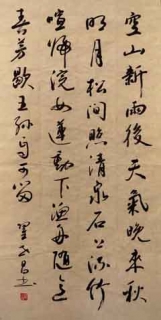 空山新雨後天氣晚來秋
明月松間照清泉石上流竹
喧歸浣女蓮動下漁舟隨意
春芳歇王孫自可留